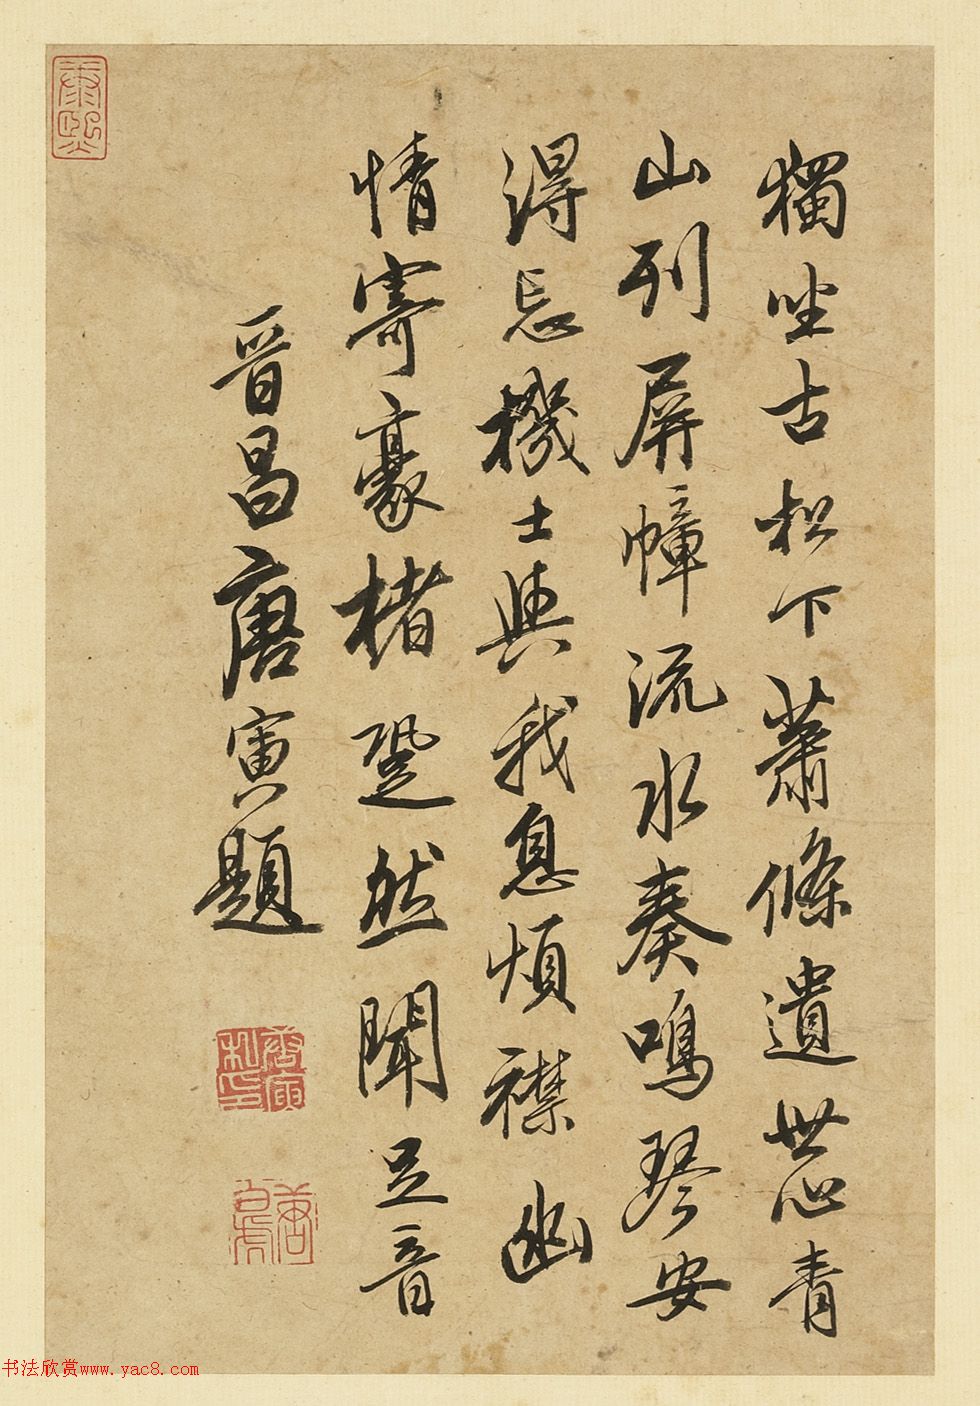 獨坐古松下蕭條遺世心青
山列屏幛流水奏鳴琴安
得忘機士與我息煩襟幽
情寄豪楮跫然聞足音
晉昌唐寅題
康熙
唐寅私印
唐白虎
书法欣赏www.yac8.com